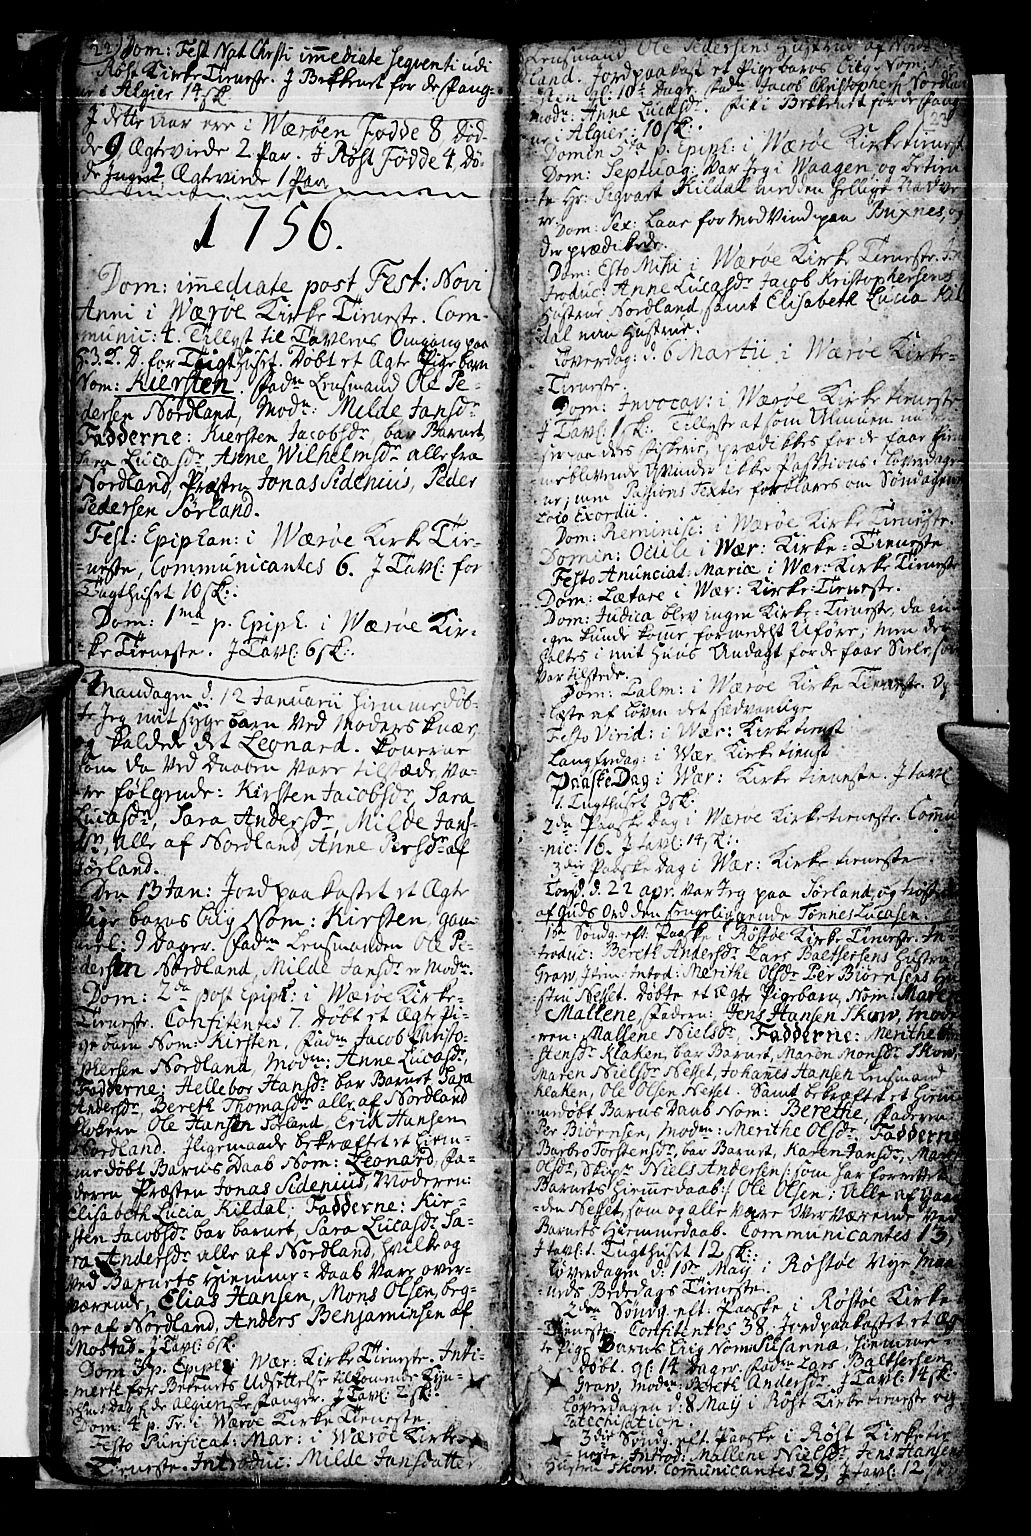 22) Dom: Fest Nat Christi immediate sequenti udi
Røst Kirke Tieneste. J Bekkenet for de Fang-
ne i Algier 14 sk
J dette Aar ere i Værøen Fødde 8 Dø-
de 9 Ægtviede 2 Par. J Røst Fødde 4, Dø-
de Ingen Ægtviede 1 Par
1756.
Dom: immediate post Fest: Novi
Anni i Værøe Kirke Tieneste. Com-
munic: 4. Tillyst til Tavlens Omgang paa
H3K. D. for Tugthuset. Døbt et Ægte Pige barn
Nom: Kiersten. Fadn Lensmand Ole Pe-
dersen Nordland, Modn: Milde Jansdr
Fadderne: Kiersten Jacobsdr, bar Barnet,
Sara Lucasdr, Anne Wilhelmsdr alle fra
Nordland, Præsten Jonas Sidenius, Peder
Pedersen Sørland.
Fest: Epiphan: i Værøe Kirke Tie-
neste, Communicantes 6. J Tavl: for
Tugthuset 10 sk:
Dom: 1ma p. Epiph. i Værøe Kir-
ke Tieneste. J Tavl: 6 sk:
Mandagen d. 12 Januarii hiemmedøb-
te Jeg mit syge barn ved Moders knæ,
og kaldede det Leonard. Konerne
som da ved Daaben vare tilstæde, va-
re følgende: Kirsten Jacobsdr, Sara
Lucasdr, Sara Andersdr, Milde Jans-
dr, alle af Nordland, Anne Persdr af
Sørland.
Den 13 Jan: Jordpaakastet et Ægte
Pige barns Liig Nom: Kirsten, gam-
mel: 9 dager. Fadn Lensmanden Ole Pe-
dersen Nordland, Milde Jansdr er Modn.
Dom: 2da post Epiph: i Værøe Kirke-
Tieneste. Confitentes 7. Døbt et Ægte Pi-
ge barn Nom: Kirsten, Fadn Jacob Christo-
phersen Nordland, Modn: Anne Lucasdr,
Fadderne: Hellebor Hansdr bar Barnet, Sara
Andersdr, Bereth Thomasdr alle af Nordland
Klokern Ole Hansen Sørland, Erik Hansen
Nordland. Iligemaade bekræftet et hiem-
medøbt Barns Daab Nom: Leonard, Fa-
deren Præsten Jonas Sidenius, Moderen:
Elisabeth Lucia Kildal; Fadderne: Kir-
sten Jacobsdr bar barnet, Sara Lucasdr, Sa-
ra Andersdr alle af Nordland, hvilke og
ved Barnets Hiemme-Daab vare over-
værende, Elias Hansen, Mons Olsen, beg-
ge af Nordland, Anders Benjaminsen af
Mostad. J Tavl: 6 sk.
Dom 3 p. Epiph: i Vær: Kirke Tieneste. Inti-
merte for Bekenets Udsettelse tilkomende Kyn-
delsmis dag f. de Algierske fanger. J Tavl: 2 sk:
Dom: 4 p. Tr. i Værøe Kirke Tieneste.
Festo Purificat: Mar: i Værøe Kirke-
Tieneste. Introduc: Milde Jansdatter
Lensmand Ole Pedersens Hustrue af Nord-
land. Jordpaakast et Pigebarns Liig Nom: Kir-
sten gl. 10 dage. Fadn Jacob Kristophers: Nordland
Modn: Anne Lucasdr. Fik i Bekkenet for de Fang-
ne i Algier: 10 sk:
(23
Domin 5ta p. Epiph: i Værøe Kirketieneste
Dom: Septuag: var Jeg i Waagen og betien-
te Hr: Sigvart Kildal med den hellige Nadve-
re.
Dom: Sex: Laae for Modvind paa Buxnes, og
der prædikede.
Dom: Esto Mihi i Værøe Kirke Tieneste. In-
troduc: Anne Lucasdr Jacob Kristophersens
Hustrue Nordland samt Elisabeth Lucia Kil-
dal min Hustrue.
Løverdag: d. 6 Martii i Værøe Kirke-
Tieneste.
Dom: Invocav: i Værøe Kirke tieneste
J Tavl: 1 sk: Tillyste at som Almuen nu
er paa deres fiskerie, prædikkes for de faae hiem
meblevende Qvinder ikke Passions i Løverdage-
ne; men Passions Texter forklares om Søndagene
loco Exordii.
Dom: Reminisc: i Værøe Kirke Tieneste.
Domin: Oculi i Vær: Kirke-Tieneste
Festo Anunciat: Mariæ i Vær: Kirke Tieneste
Dom: Lætare i Vær: Kirke-Tieneste.
Dom: Judica blev ingen Kirke-Tieneste, da in-
gen kunde kome formedelst Uføre; men der
holtes i mit Huus Andagt for de faae Siele som
var tilstede.
Dom: Palm: i Værøe Kirke Tieneste. Op
læste af Loven det sædvanlige
Festo Virid: i Vær: Kirke tienest
Langfredag: i Vær: Kirke tienest
PaaskeDag i Vær: Kirke tieneste. J tavl
t. Tugthuset 3 sk:
2den Paaske dag i Værøe Kirketieneste. Comu
nic: 16. J tavl: 14 sk:
3die Paaske Dag i Vær: Kirke tieneste.
Torsd: d. 22 apr: var Jeg paa Sørland, og trøstede
af Guds Ord den sengeliggende Tønnes Lucasen.
1ste Søndg. eft. Paaske i Røstøe Kirke Tieneste. In-
troduc: Bereth Andersdr Lars Balthersens Hustru
Graw. Item: Introd: Merithe Olsdr Per Biørnsens Hu-
stru Nesset. Døbte et Ægte Pigebarn, Nom: Maren
Mallene, Faderen: Jens Hansen Skow, Mode-
ren: Mallene Nielsdr, Fadderne: Merithe
stensdr Klaken, bar Barnet, Maren Monsdr Skow,
Maren Nielsdr Nesset, Johanes Hansen Lensmand
Klaken, Ole Olsen Nesset. Samt bekræftet et hiem-
medøbt Barns Daab Nom: Berethe, Faderen
Per Biørnsen, Modn: Merithe Olsdr, Fadderne
Barbro Torstensdr, bar Barnet, Karen Jansdr, Maren
Olsdr, Skipr Niels Andersen /: som har forrettet
Barnets hiemmedaab :/ Ole Olsen; Alle af Gaar
den Nesset, som og alle vare overværende ved
Barnets Hiemmedaab. Communicantes 13,
J tavl: t. Tugthuset 12 sk:
Løverdagen d: 1ste Maij i Røstøe Nye Maa-
neds Bededags Tieneste.
2den Søndg. eft. Paaske, i Røstøe Kirke
Tieneste. Confitentes 38. Jordpaakastet et Æg
te Pige Barns Liig Nom: Susanna, hiemme-
døbt, gl: 14 Dager, Fadn Lars Balthersen
Graw, Modn Bereth Andersdr. J Tavl: 14 sk:
Løverdagen d: 8 Maij i Røst Kirke tieneste og
Catechisation.
3die Søndg. eft. Paaske i Røst Kirketie
neste. Introd: Mallene Nielsdr Jens Hansens
Hustru Skow. Comunicantes 29, J tavl: 12